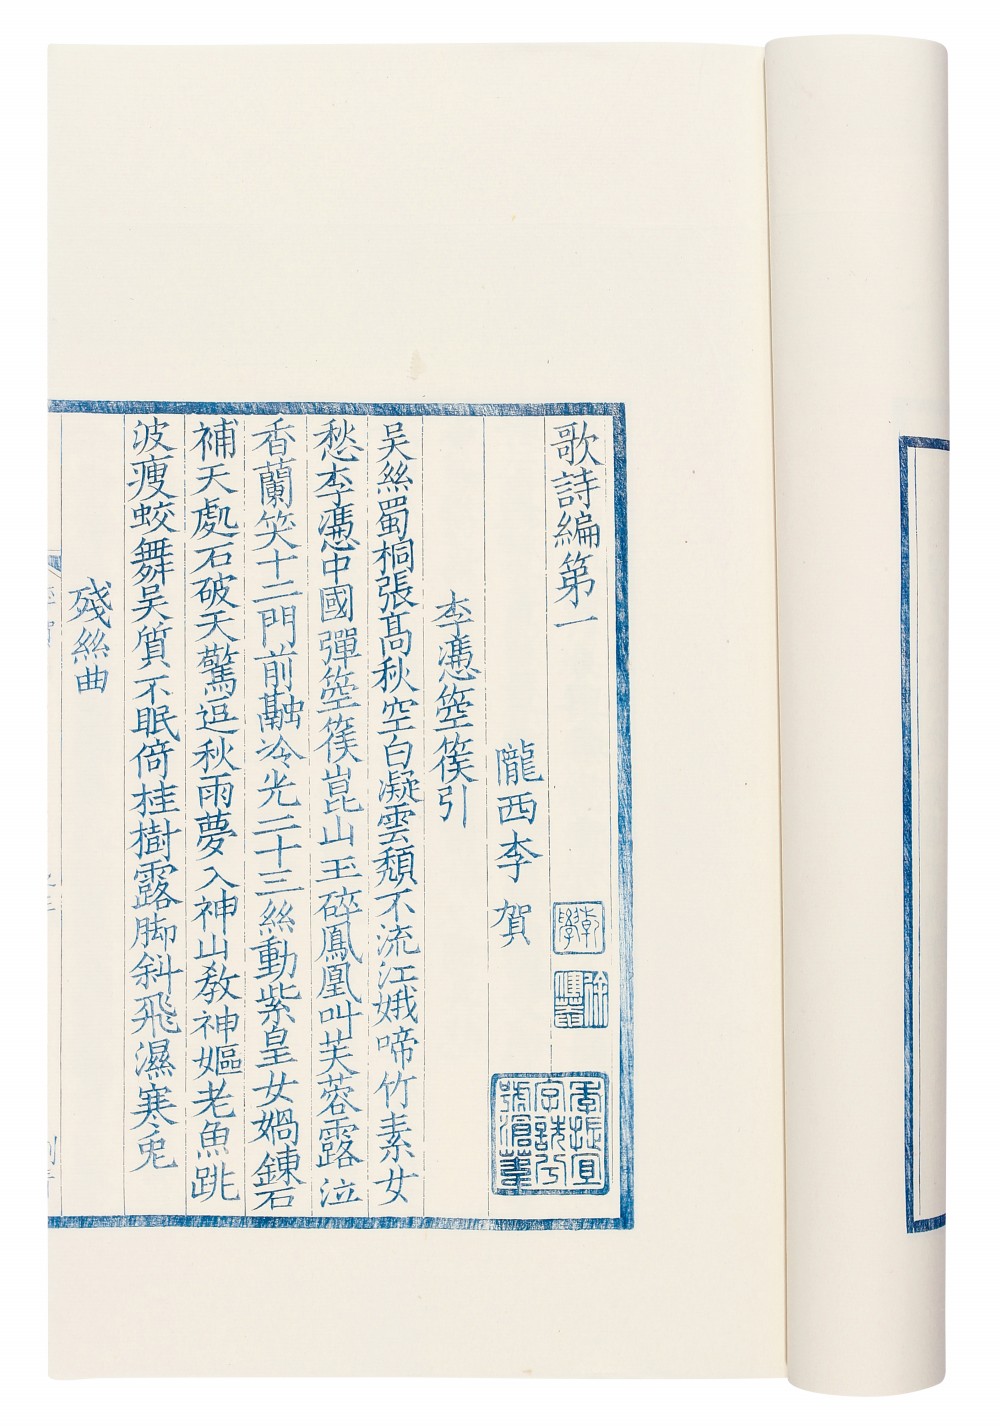 歌詩編第一
隴西李賀
李憑箜篌引
吴絲蜀桐張髙秋空白凝雲頽不流江娥啼竹素女
愁李憑中國彈箜篌崑山玉碎鳳凰叫芙蓉露泣
香蘭笑十二門前融冷光二十三絲動紫皇女媧鍊石
補天處石破天驚逗秋雨夢入神山教神嫗老魚跳
波瘦蛟舞吴質不眠倚桂樹露脚斜飛濕寒兎
殘絲曲
季振宜
字詵兮
號滄葦